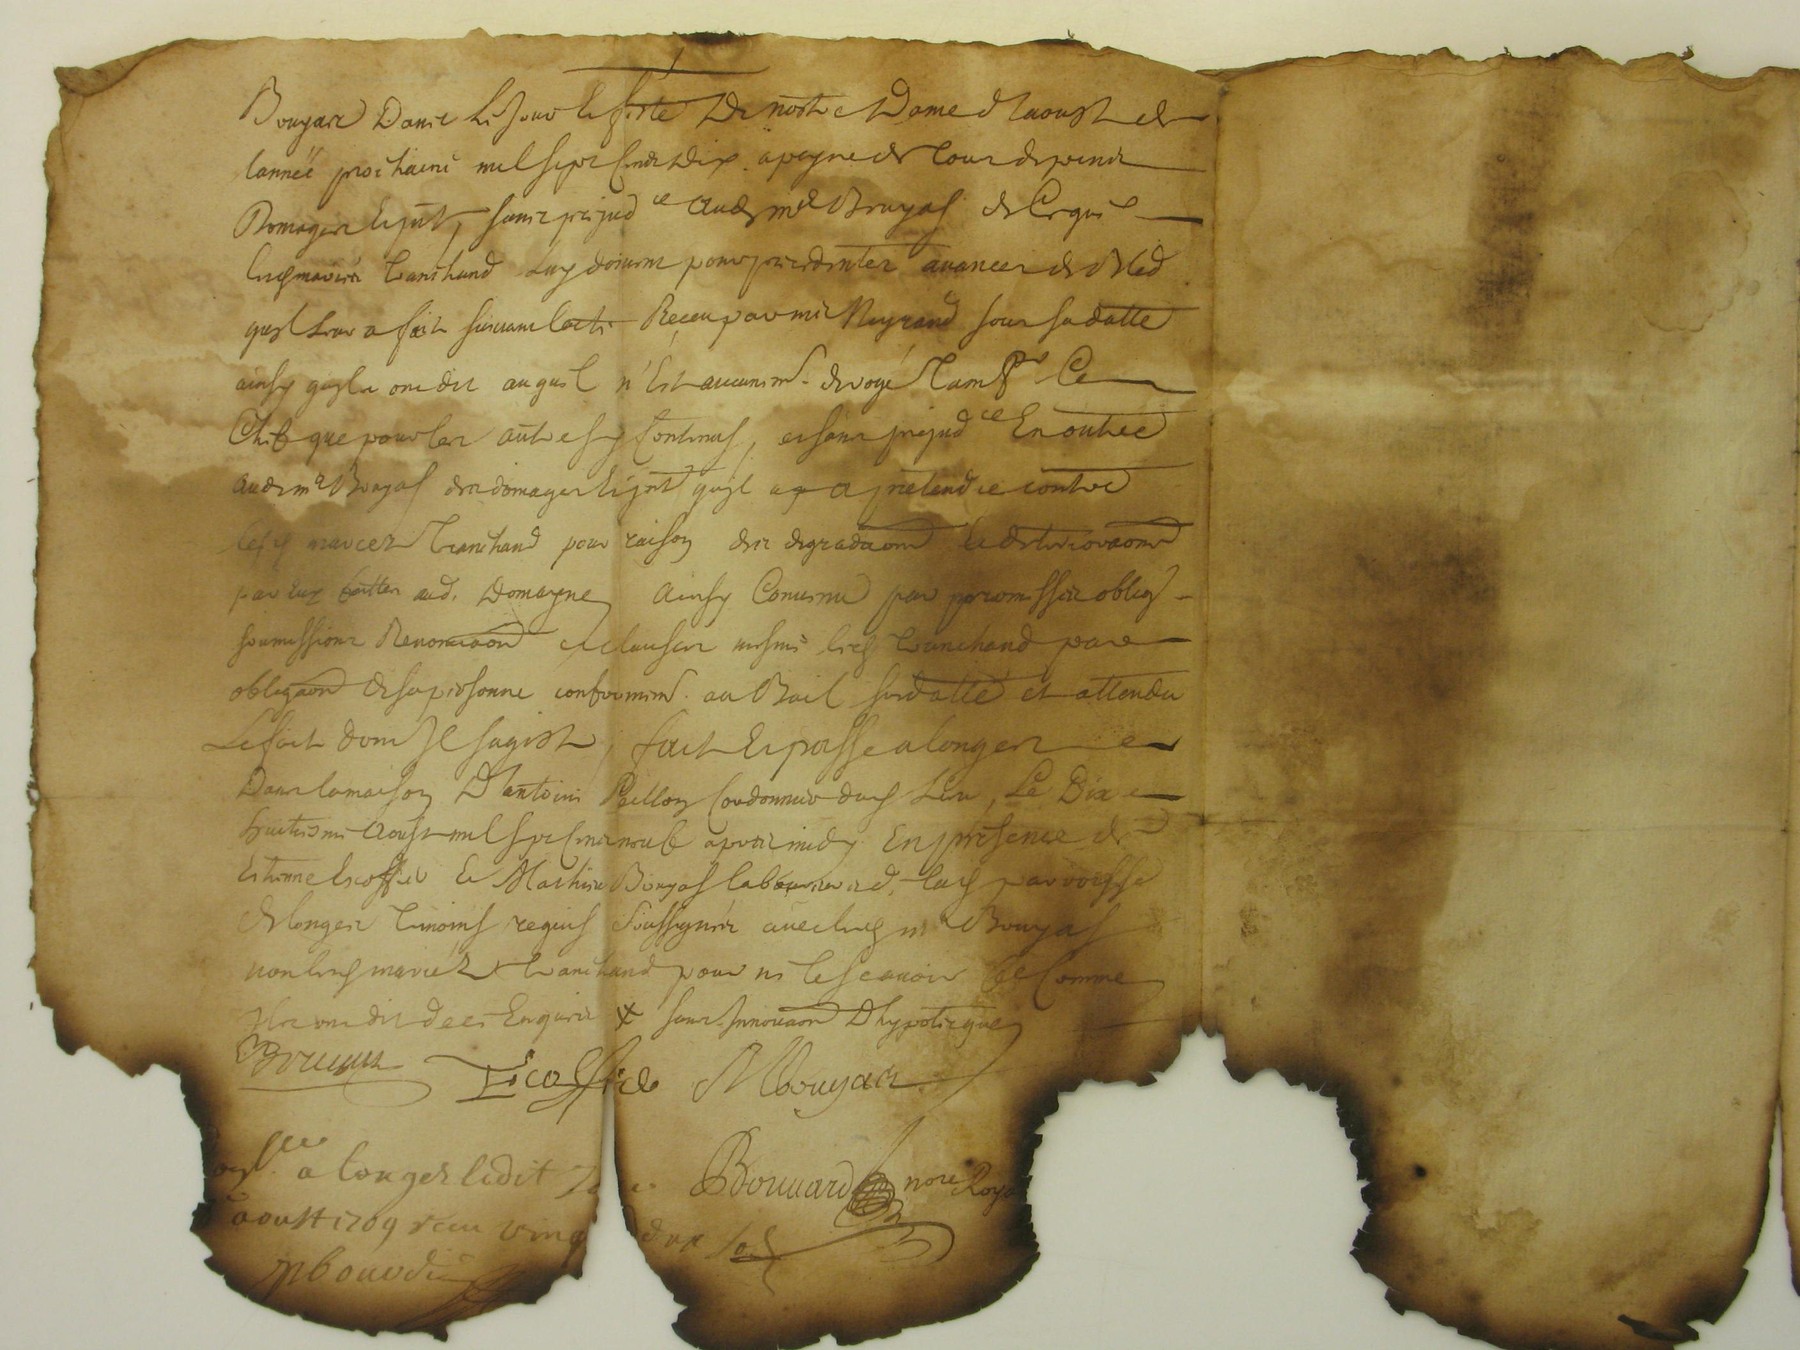 Bouyas Dans Le Jour & feste De nostre Dame d'aoust de
lannéé prochaine mil sept Cents Dix a peyne de tous depens
Domages & jnt, sans prejud ce Aud. m.e Bouyas de Ce que
lesd mariés Tranchand Luy doivent pour precedentes avances de Bled
quil Leur a fait suivant lacte Receu par me Neyrand sous sa datte
ainsy quils ont dit auquel n'Est aucunem.t derogé tant p.r Ce
Chef que pour les autres y Contenus, et sans prejud ce En outre
Aud. m.e Bouyas des domages & jnt quil a a pretendre contre
lesd mariez Tranchand pour raison des degradaons & deterioraons
par Eux faittes aud. Domayne, Ainsy Convenu par promisses oblig.
soumissions Renonciaons et clauses mesme lesd Tranchand par
obligaon de sa personne conformem.t au Bail susdatté et attendu
Le fait dont Jl sagist, fait & passé a longes
Dans la maison D'antoine Paillon Cordonnier dud Lieu, Le Dix
huitiesme Aoust mil sept Cents neuf apres midy En presence de
Estienne Escoffier & Mathieu Bouyas laboureurs de lad parroisse
de longes Temoins requis soussignés avec led m.e Bouyas
non lesd mariés Tranchand pour ne le scavoir Comme
Jls ont dit de ce Enquis x sans Jnnovaon D'hypoteque
Bouyas Escoffier M bouyas
a longes ledit
aoust 1709 receu vingt deux sols
Bouvard nore Royal